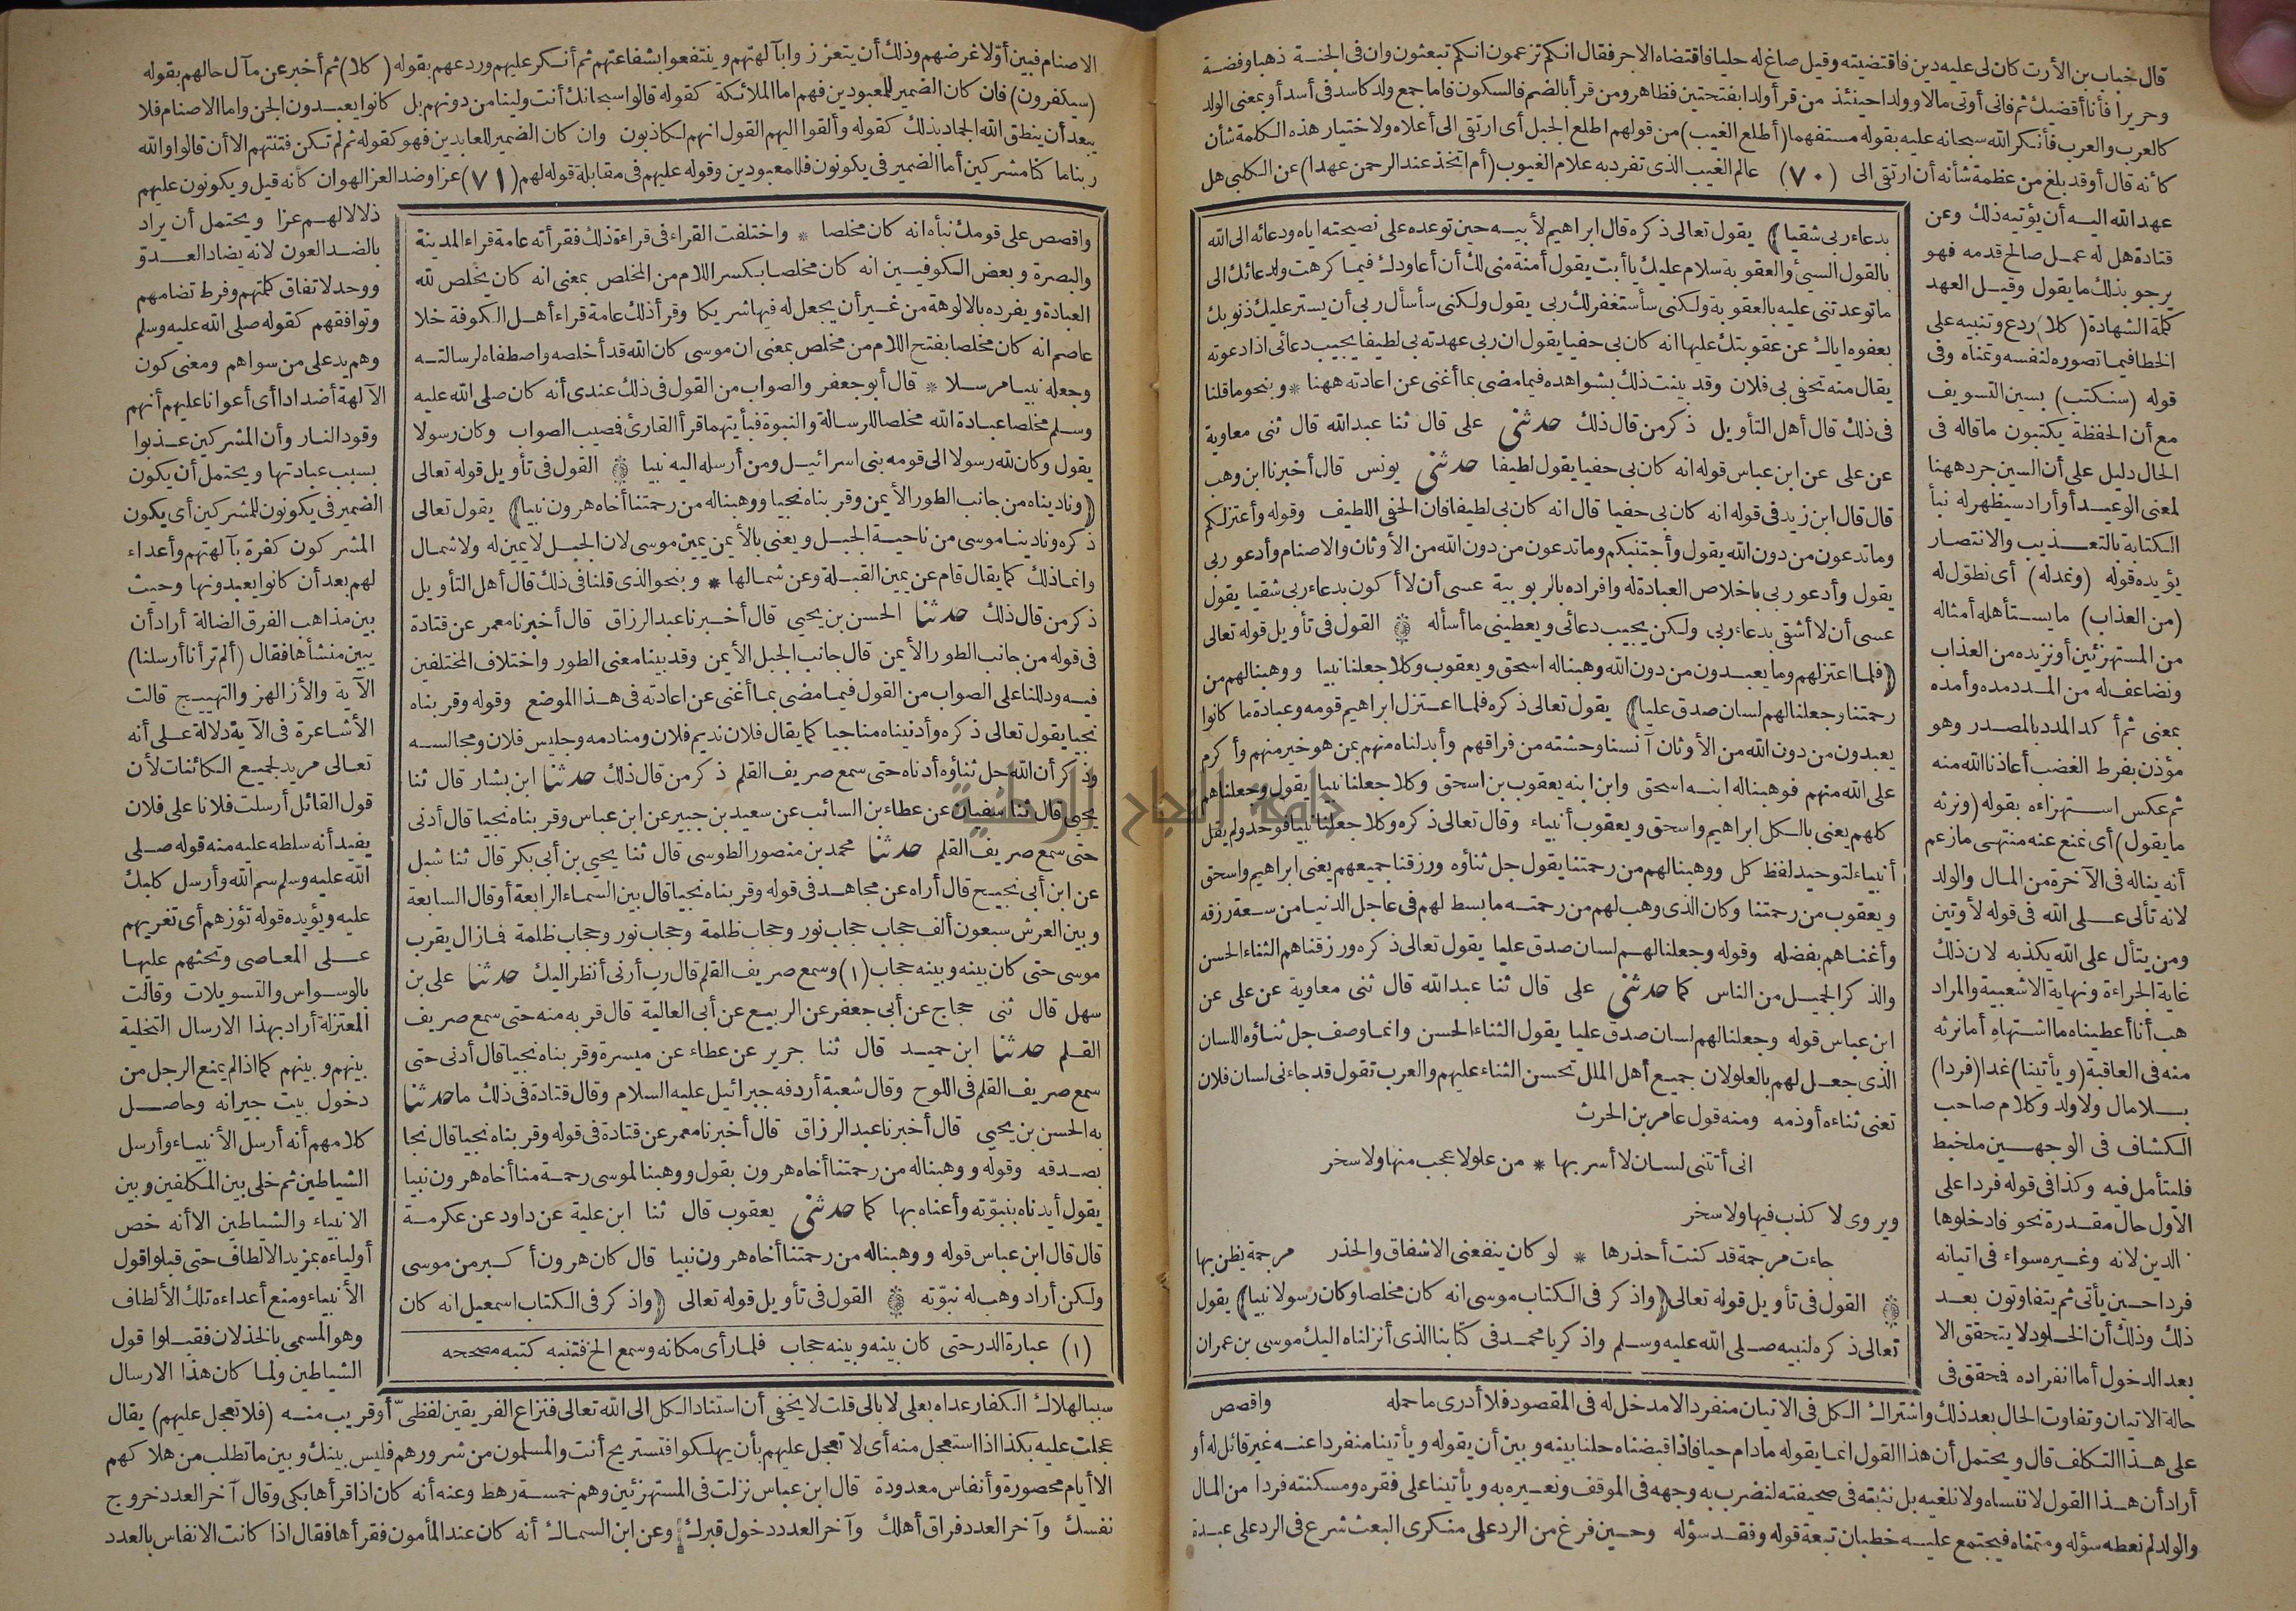 قال خباب بن الأرت كان لى عليه دين فاقتضيته وقيل صاغ له حليا فاقتضاه الاجر فقال انكم تزعمون انكم تبعثون وان فى الجنة ذهبا وفضة
وحريرا فأنا أقضيك ثم فانى أوتى مالا وولدا حينئذ من قرأ ولدا بفتحتين فظاهر ومن قرأ بالضم فالسكون فاما جمع ولد كاسد فى أسد أو بمعنى الولد
كالعرب والعرب فأنكر الله سبحانه عليه بقوله مستفهما (أطلع الغيب) من قولهم اطلع الجبل أى ارتقى الى أعلاه ولاختيار هذه الكلمة شأن
كأنه قال أو قد بلغ من عظمة شأنه أن ارتقى الى (٧٠) عالم الغيب الذى تفرد به علام الغيوب (أم اتخذ عند الرحمن عهدا) عن الكلبى هل
عهد الله اليه أن يؤتيه ذلك وعن
قتادة هل له عمل صالح قدمه فهو
يرجو بذلك ما يقول وقيل العهد
كلمة الشهادة (كلا) ردع وتنبيه على
الخطا فيما تصوره لنفسه وتمناه وفى
قوله (سنكتب) بسين التسويف
مع أن الحفظة يكتبون ما قاله فى
الحال دليل على أن السين جرد ههنا
لمعنى الوعيد أو أراد سيظهر له نبأ
الكتابة بالتعذيب والانتصار
يؤيده قوله (ونمد له) أى نطوّل له
(من العذاب) ما يستأهله أمثاله
من المستهزئين أو نزيده من العذاب
ونضاعف له من المدد مده وأمده
بمعنى ثم أكد المدد بالمصدر وهو
مؤذن بفرط الغضب أعاذنا الله منه
ثم عكس استهزاءه بقوله (ونرثه
ما يقول) أى نمنع عنه منتهى ما زعم
أنه يناله فى الآخرة من المال والولد
لانه تألى على الله فى قوله لأوتين
ومن يتأل على الله يكذبه لان ذلك
غاية الجراءة ونهاية الاشعبية والمراد
هب أنا أعطيناه ما اشتهاه أما نرثه
منه فى العاقبة (ويأتينا) غدا (فردا)
بلا مال ولا ولد وكلام صاحب
الكشاف فى الوجهين ملخبط
فليتأمل فيه وكذا فى قوله فردا على
الأول حال مقدرة نحو فادخلوها
الدين لانه وغيره سواء فى اتيانه
فردا حين يأتى ثم يتفاوتون بعد
ذلك وذلك أن الخلود لا يتحقق الا
بعد الدخول أما انفراده فحقق فى
بدعاء ربى شقيا) يقول تعالى ذكره قال ابراهيم لأبيه حين توعده على نصيحته اياه ودعائه الى الله
بالقول السيئ والعقوبة سلام عليك يا أبت يقول أمنة منى لك أن أعاودك فيما كرهت ولدعائك الى
ما توعدتنى عليه بالعقوبة ولكنى سأستغفر لك ربى يقول ولكنى سأسأل ربى أن يستر عليك ذنوبك
بعفوه اياك عن عقوبتك عليها انه كان بى حفيا يقول ان ربى عهدته بى لطيفا يجيب دعائى اذا دعوته
يقال منه تحفى بى فلان وقد بينت ذلك بشواهده فيما مضى بما أغنى عن اعادته ههنا * وبنحو ما قلنا
فى ذلك قال أهل التأويل ذكر من قال ذلك حدثنى على قال ثنا عبد الله قال ثنى معاوية
عن على عن ابن عباس قوله انه كان بى حفيا يقول لطيفا حدثنى يونس قال أخبرنا ابن وهب
قال قال ابن زيد فى قوله انه كان بى حفيا قال انه كان بى لطيفا فان الحفى اللطيف وقوله وأعتزلكم
وما تدعون من دون الله يقول وأجتنبكم وما تدعون من دون الله من الأوثان والاصنام وأدعو ربى
يقول وأدعو ربى باخلاص العبادة له وافراده بالربوبية عسى أن لا أكون بدعاء ربى شقيا يقول
عسى أن لا أشقى بدعاء ربى ولكن يجيب دعائى ويعطينى ما أسأله القول فى تأويل قوله تعالى
(فلما اعتزلهم وما يعبدون من دون الله وهبنا له اسحق ويعقوب وكلا جعلنا نبيا ووهبنا لهم من
رحمتنا وجعلنا لهم لسان صدق عليا) يقول تعالى ذكره فلما اعتزل ابراهيم قومه وعبادة ما كانوا
يعبدون من دون الله من الأوثان آنسنا وحشته من فراقهم وأبدلناه منهم بمن هو خير منهم وأكرم
على الله منهم فوهبنا له ابنه اسحق وابن ابنه يعقوب بن اسحق وكلا جعلنا نبيا يقول وجعلناهم
كلهم يعنى بالكل ابراهيم واسحق ويعقوب أنبياء وقال تعالى ذكره وكلا جعلنا نبيا فوحد ولم يقل
أنبياء لتوحيد لفظ كل ووهبنا لهم من رحمتنا يقول جل ثناؤه ورزقنا جميعهم يعنى ابراهيم واسحق
ويعقوب من رحمتنا وكان الذى وهب لهم من رحمته ما بسط لهم فى عاجل الدنيا من سعة رزقه
وأغناهم بفضله وقوله وجعلنا لهم لسان صدق عليا يقول تعالى ذكره ورزقناهم الثناء الحسن
والذكر الجميل من الناس كما حدثنى على قال ثنا عبد الله قال ثنى معاوية عن على عن
ابن عباس قوله وجعلنا لهم لسان صدق عليا يقول الثناء الحسن وانما وصف جل ثناؤه اللسان
الذى جعل لهم بالعلو لان جميع أهل الملل تحسن الثناء عليهم والعرب تقول قد جاءنى لسان فلان
تعنى ثناءه أو ذمه ومنه قول عامر بن الحرث
انى أتتنى لسان لا أسر بها * من علو لا عجب منها ولا سخر
ويروى لا كذب فيها ولا سخر
جاءت مرجمة قد كنت أحذرها * لو كان ينفعنى الاشفاق والحذر مرجمة يظن بها
القول فى تأويل قوله تعالى (واذكر فى الكتاب موسى انه كان مخلصا وكان رسولا نبيا) يقول
تعالى ذكره لنبيه صلى الله عليه وسلم واذكر يا محمد فى كتابنا الذى أنزلناه اليك موسى بن عمران
واقصص
حالة الاتيان وتفاوت الحال بعد ذلك واشتراك الكل فى الاتيان منفردا لا مدخل له فى المقصود فلا أدرى ما حمله
على هذا التكلف قال ويحتمل أن هذا القول انما يقوله ما دام حيا فاذا قبضناه حلنا بينه وبين أن يقوله ويأتينا منفردا عنه غير قائل له أو
أراد أن هذا القول لا ننساه ولا نلغيه بل نثبته فى صحيفته لنضرب به وجهه فى الموقف ونعيره به ويأتينا على فقره ومسكنته فردا من المال
والولد لم نعطه سؤله ومتمناه فيجتمع عليه خطبان تبعة قوله وفقد سؤله وحين فرغ من الرد على منكرى البعث شرع فى الرد على عبدة
الاصنام فبين أوّلا غرضهم وذلك أن يتعززوا بآلهتهم وينتفعوا بشفاعتهم ثم أنكر عليهم وردعهم بقوله (كلا) ثم أخبر عن مآل حالهم بقوله
(سيكفرون) فان كان الضمير للمعبودين فهم اما الملائكة كقوله قالوا سبحانك أنت ولينا من دونهم بل كانوا يعبدون الجن واما الاصنام فلا
يبعد أن ينطق الله الجماد بذلك كقوله وألقوا اليهم القول انهم لكاذبون وان كان الضمير للعابدين فهو كقوله ثم لم تكن فتنتهم الا أن قالوا والله
ربنا ما كنا مشركين أما الضمير فى يكونون فللمعبودين وقوله عليهم فى مقابلة قوله لهم (٧١) عزا وضد العز الهوان كأنه قيل ويكونون عليهم
ذلا لا لهم عزا ويحتمل أن يراد
بالضد العون لانه يضاد العدوّ
ووحد لاتفاق كلمتهم وفرط تضامهم
وتوافقهم كقوله صلى الله عليه وسلم
وهم يد على من سواهم ومعنى كون
الآلهة أضدادا أى أعوانا عليهم أنهم
وقود النار وأن المشركين عذبوا
بسبب عبادتها ويحتمل أن يكون
الضمير فى يكونون للمشركين أى يكون
المشركون كفرة بآلهتهم وأعداء
لهم بعد أن كانوا يعبدونها وحيث
بين مذاهب الفرق الضالة أراد أن
يبين منشأها فقال (ألم تر أنا أرسلنا)
الآية والأز الهز والتهييج قالت
الأشاعرة فى الآية دلالة على أنه
تعالى مريد لجميع الكائنات لأن
قول القائل أرسلت فلانا على فلان
يفيد أنه سلطه عليه منه قوله صلى
الله عليه وسلم سم الله وأرسل كلبك
عليه ويؤيده قوله تؤزهم أى تغريهم
على المعاصى وتحثهم عليها
بالوسواس والتسويلات وقالت
المعتزلة أراد بهذا الارسال التخلية
بينهم وبينهم كما اذا لم يمنع الرجل من
دخول بيت جيرانه وحاصل
كلامهم أنه أرسل الأنبياء وأرسل
الشياطين ثم خلى بين المكلفين وبين
الانبياء والشياطين الا أنه خص
أولياءه بمزيد الالطاف حتى قبلوا قول
الأنبياء ومنع أعداءه تلك الألطاف
وهو المسمى بالخذلان فقبلوا قول
الشياطين ولما كان هذا الارسال
واقصص على قومك نبأه انه كان مخلصا * واختلفت القراء فى قراءة ذلك فقرأته عامة قراء المدينة
والبصرة وبعض الكوفيين انه كان مخلصا بكسر اللام من المخلص بمعنى انه كان يخلص لله
العبادة ويفرده بالالوهة من غير أن يجعل له فيها شريكا وقرأ ذلك عامة قراء أهل الكوفة خلا
عاصم انه كان مخلصا بفتح اللام من مخلص بمعنى ان موسى كان الله قد أخلصه واصطفاه لرسالته
وجعله نبيا مرسلا * قال أبو جعفر والصواب من القول فى ذلك عندى أنه كان صلى الله عليه
وسلم مخلصا عبادة الله مخلصا للرسالة والنبوة فبأيتهما قرأ القارئ فمصيب الصواب وكان رسولا
يقول وكان لله رسولا الى قومه بنى اسرائيل ومن أرسله اليه نبيا القول فى تأويل قوله تعالى
(وناديناه من جانب الطور الأيمن وقربناه نجيا ووهبنا له من رحمتنا أخاه هرون نبيا) يقول تعالى
ذكره ونادينا موسى من ناحية الجبل ويعنى بالأيمن يمين موسى لان الجبل لا يمين له ولا شمال
وانما ذلك كما يقال قام عن يمين القبلة وعن شمالها * وبنحو الذى قلنا فى ذلك قال أهل التأويل
ذكر من قال ذلك حدثنا الحسن بن يحيى قال أخبرنا عبد الرزاق قال أخبرنا معمر عن قتادة
فى قوله من جانب الطور الأيمن قال جانب الجبل الأيمن وقد بينا معنى الطور واختلاف المختلفين
فيه ودللنا على الصواب من القول فيما مضى بما أغنى عن اعادته فى هذا الموضع وقوله وقربناه
نجيا يقول تعالى ذكره وأدنيناه مناجيا كما يقال فلان نديم فلان ومنادمه وجليس فلان ومجالسه
وذكر أن الله جل ثناؤه أدناه حتى سمع صريف القلم ذكر من قال ذلك حدثنا ابن بشار قال ثنا
يحيى قال ثنا سفيان عن عطاء بن السائب عن سعيد بن جبير عن ابن عباس وقربناه نجيا قال أدنى
حتى سمع صريف القلم حدثنا محمد بن منصور الطوسى قال ثنا يحيى بن أبى بكر قال ثنا شبل
عن ابن أبى نجيح قال أراه عن مجاهد فى قوله وقربناه نجيا قال بين السماء الرابعة أو قال السابعة
وبين العرش سبعون ألف حجاب حجاب نور وحجاب ظلمة وحجاب نور وحجاب ظلمة فما زال يقرب
موسى حتى كان بينه وبينه حجاب (١) وسمع صريف القلم قال رب أرنى أنظر اليك حدثنا على بن
سهل قال ثنى حجاج عن أبى جعفر عن الربيع عن أبى العالية قال قربه منه حتى سمع صريف
القلم حدثنا ابن حميد قال ثنا جرير عن عطاء عن ميسرة وقربناه نجيا قال أدنى حتى
سمع صريف القلم فى اللوح وقال شعبة أردفه جبرائيل عليه السلام وقال قتادة فى ذلك ما حدثنا
به الحسن بن يحيى قال أخبرنا عبد الرزاق قال أخبرنا معمر عن قتادة فى قوله وقربناه نجيا قال نجا
بصدقه وقوله ووهبنا له من رحمتنا أخاه هرون يقول ووهبنا لموسى رحمة منا أخاه هرون نبيا
يقول أيدناه بنبوّته وأعناه بها كما حدثنى يعقوب قال ثنا ابن علية عن داود عن عكرمة
قال قال ابن عباس قوله ووهبنا له من رحمتنا أخاه هرون نبيا قال كان هرون أكبر من موسى
ولكن أراد وهب له نبوّته القول فى تأويل قوله تعالى (واذكر فى الكتاب اسمعيل انه كان
(١) عبارة الدر حتى كان بينه وبينه حجاب فلما رأى مكانه وسمع الخ فتنبه كتبه مصححه
سببا لهلاك الكفار عداه بعلى لا بالى قلت لا يخفى أن استناد الكل الى الله تعالى فنزاع الفريقين لفظىّ أو قريب منه (فلا تعجل عليهم) يقال
عجلت عليه بكذا اذا استعجل منه أى لا تعجل عليهم بأن يهلكوا فتستريح أنت والمسلمون من شرورهم فليس بينك وبين ما تطلب من هلاكهم
الا أيام محصورة وأنفاس معدودة قال ابن عباس نزلت فى المستهزئين وهم خمسة رهط وعنه أنه كان اذا قرأها بكى وقال آخر العدد خروج
نفسك وآخر العدد فراق أهلك وآخر العدد دخول قبرك وعن ابن السماك أنه كان عند المأمون فقرأها فقال اذا كانت الانفاس بالعدد
جامعة النجاح الوطنية